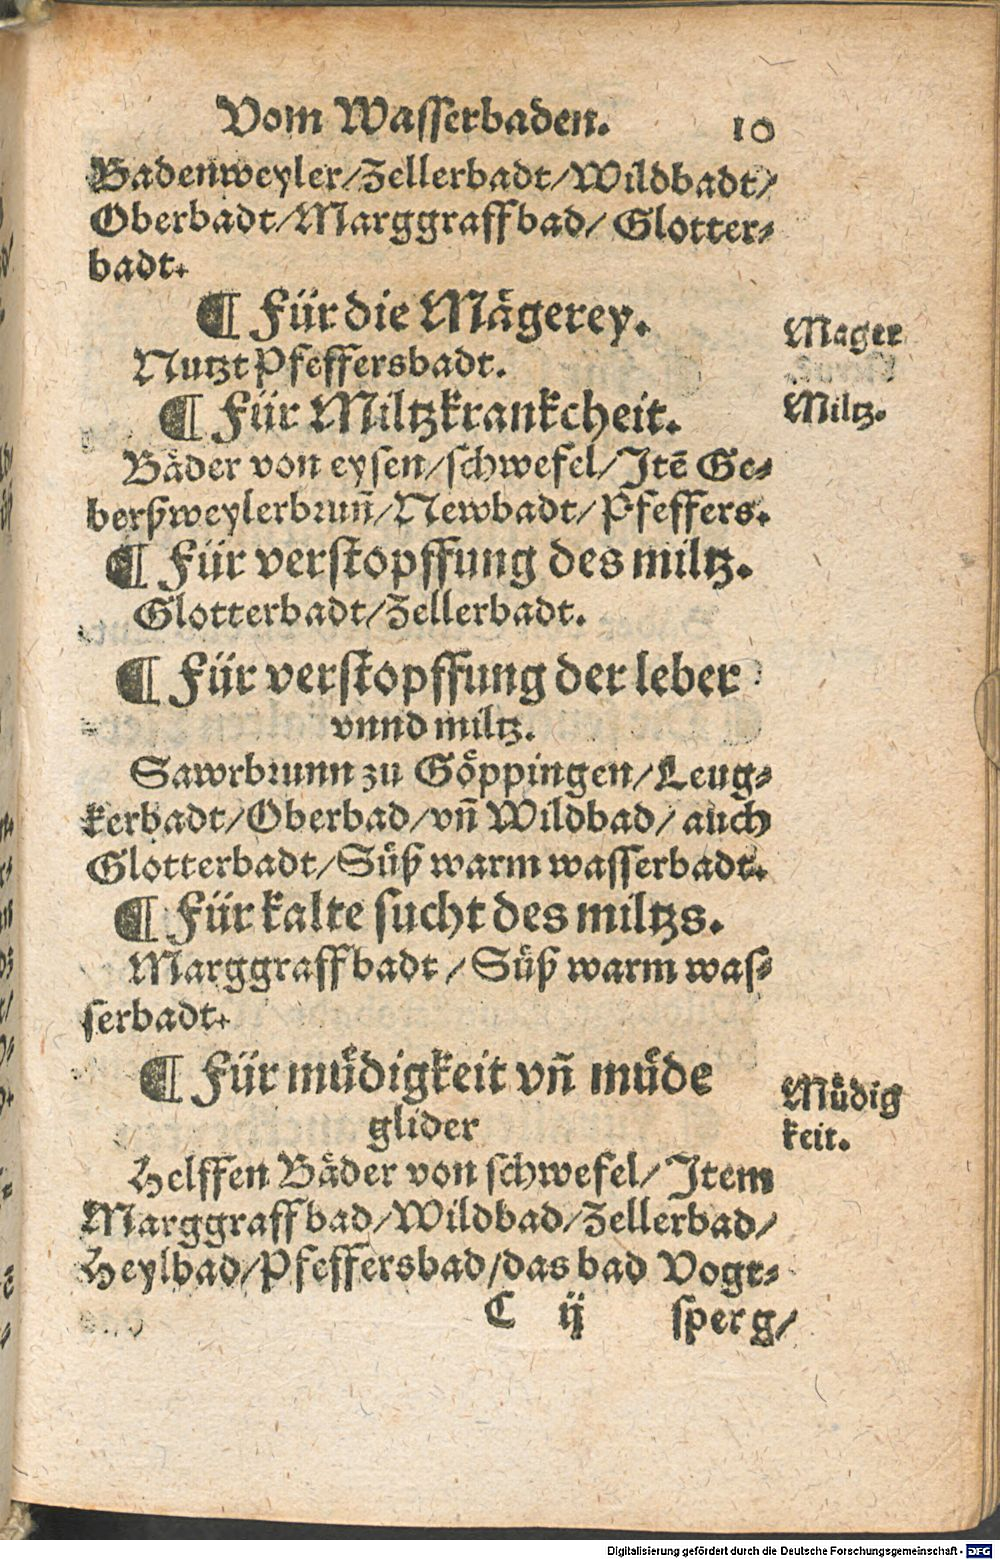 Vom Wasserbaden. 10
Badenweyler/Zellerbadt/Wildbadt/
Oberbadt/Marggraffbad/ Glotter-
badt.
¶ Für die Mågerey.
Mager
Nutzt Pfeffersbadt.
¶ Für Miltzkranckheit.
Miltz.
Båder von eysen/schwefel/Itē Ge-
berßweylerbrunñ/Newbadt/Pfeffers.
¶ Für verstopffung des miltz.
Glotterbadt/Zellerbadt.
¶ Für verstopffung der leber
vnnd miltz.
Sawrbrunn zu Göppingen/Leug-
kerbadt/Oberbad/vñ Wildbad/ auch
Glotterbadt/Süß warm wasserbadt.
¶ Für kalte sucht des miltzs.
Marggraffbadt/Süß warm was-
serbadt.
¶ Für müdigkeit vñ müde
glider
Müdig
keit.
Helffen Båder von schwefel/ Item
Marggraffbad/Wildbad/Zellerbad/
Heylbad/Pfeffersbad/das bad Vogt-
C ij sperg/
Digitalisierung gefördert durch die Deutsche Forschungsgemeinschaft - DFG